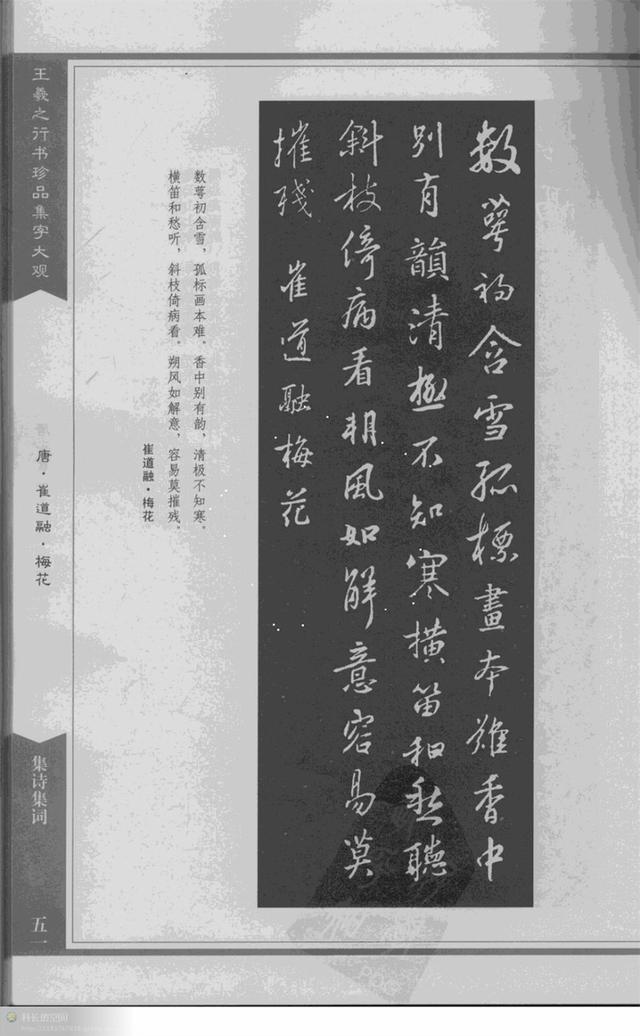 數萼初含雪孤標畫本難香中
別有韻清極不知寒橫笛和愁聽
斜枝倚病看朔風如解意容易莫
摧殘 崔道融梅花
数萼初含雪，孤标画本难。香中别有韵，清极不知寒。
横笛和愁听，斜枝倚病看。朔风如解意，容易莫摧残。
崔道融·梅花
王羲之行书珍品集字大观
唐·崔道融·梅花
集诗集词
五一
科长的空间